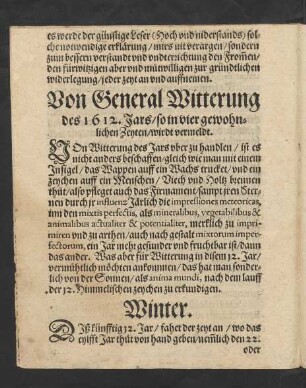 es werde der günstige Leser (Hoch und niderstands) sol-
che notwendige erklärung / mirs nit verargen / sondern
zum bessern verstand und vnderrichtung den From̃en /
den fürwitzigen aber vnd mutwilligen zur gründtlichen
widerlegung / jeder zeyt an vnd auffnemen.
Von General Witterung
des 1612. Jars / so in vier gewohn-
lichen Zeyten / wirdt vermeldt.
VOn Witterung des Jars vber zu handlen / ist es
nicht anders beschaffen / gleich wie man mit einem
Insigel / das Wappen auff ein Wachs trucket / vnd ein
zeychen auff ein Menschen / Viech vnd Holtz brennen
thüt / also pfleget auch das Firmament / sampt jren Ster-
nen durch jr influentz Järlich die impressiones meteoricas,
inn den mixtis perfectis, als mineralibus, vegetabilibus &
animalibus actualiter & potentialiter, mercklich zu impri-
miren vnd zu arthen / auch nach gestalt mixtorum imper-
fectorum, ein Jar mehr gesunder vnd fruchtbar ist / dann
das ander. Was aber für Witterung in disem 12. Jar /
vermühtlich möchten ankommen / das hat man sonder-
lich von der Sonnen / als anima mundi, nach dem lauff
der 12. Himmelischen zeychen zu erkundigen.
Winter.
DIß künfftig 12. Jar / fahet der zeyt an / wo das
eylfft Jar thüt von hand geben / nemlich den 22.
oder